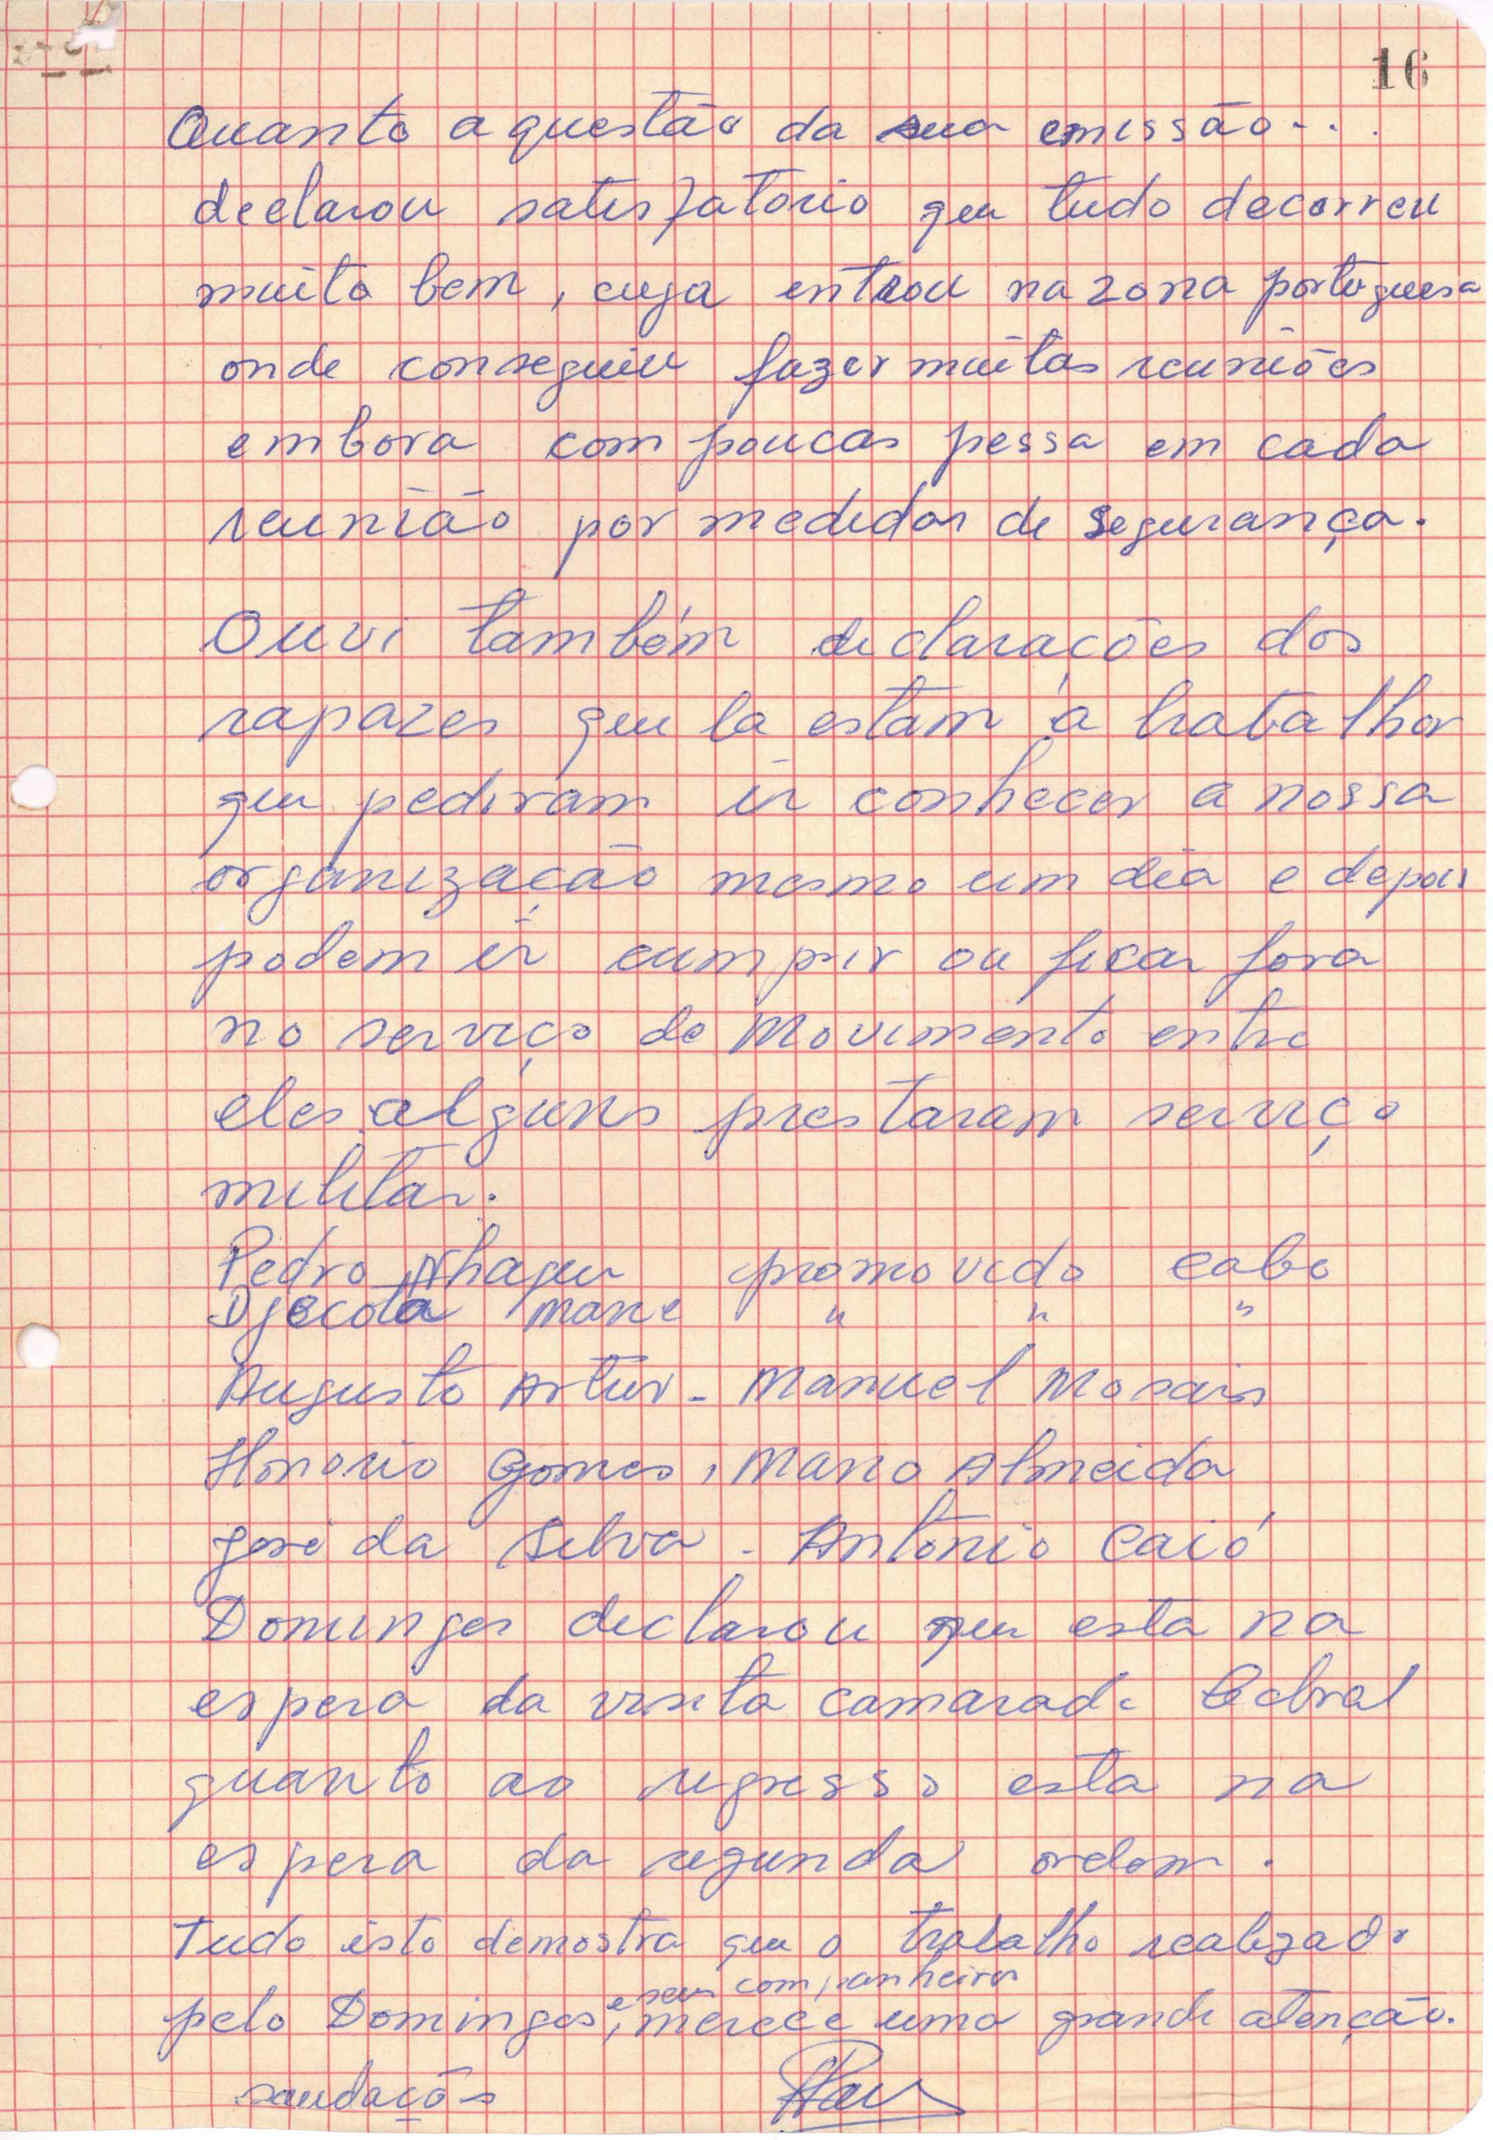 16
Quanto a questão da sua emissão...
declarou satisfatório que tudo decorreu
muito bem, cuja entrou na zona portuguesa
onde conseguiu fazer muitas reuniões
embora com poucas pessa em cada
reunião por medidas de segurança.
Ouvi também declarações dos
rapazes que la estam á trabalhar
que pediram ir conhecer a nossa
organização mesmo um dia e depois
podem ir cumprir ou ficar fora
no serviço do Movimento entre
eles alguns prestaram serviço
militar.
Pedro Nhagu promovido cabo
Djecota mane " " "
Augusto Artur - Manuel Morais
Honorio Gomes, Mario Almeida
José da Silva - António Caió
Domingos declarou que esta na
espera da visita camarada Cabral
quanto ao regresso esta na
espera da segunda ordem.
Tudo isto demostra que o trabalho realizado
e seus companheiros
pelo Domingos, merece uma grande atenção.
saudações